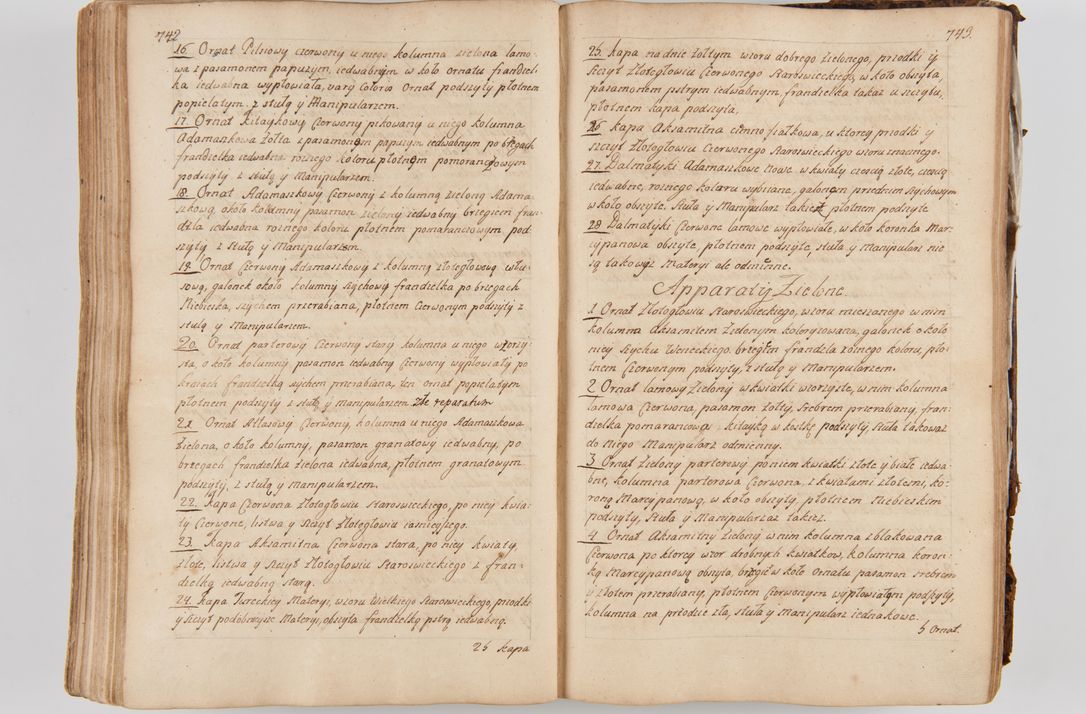 742
16. Ornat Pilsiowy czerwony u niego kolumna zielona lamo-
wa z pasamonem papuzym, iedwabnym w koło ornatu frandzel-
ka iedwabna wypłowiała, vary Coloris Ornat podszyty płotnem
popielatym. z stułą y Manipularzem.
17. Ornat Kitaykowy Czerwony pikowany u niego kolumna
Adamaszkowa żołta z pasamonem papuzym iedwabnym po brzegach
frandzelka iedwabna rożnego koloru płotnem pomorańczowym
podszyty z stułą y Manipularzem.
18. Ornat Adamaszkowy Czerwony z kolumną zieloną Adama-
szkową, około kolumny pasamon zielony iedwabny brzegiem fran-
dzla iedwabna rożnego koloru płotnem pomarańczowym pod-
szyty z stułą y Manipularzem.
19. Ornat Czerwony Adamaszkowy z kolumną złotogłowową włu-
sową, galonek około kolumny szychowy frandzelka po brzegach
Niebieska, szychem przerabiana, płotnem Czerwonym podszyty z
stułą y Manipularzem.
20. Ornat parterowy Czerwony stary kolumna u niego wzorzy-
sta, około kolumny pasamon iedwabny Czerwony wypłowiały po
kraiach frandzelką szychem przerabiana, ten ornat popielatym
płotnem podszyty z stułą y manipularzem. Złe reparatum
21. Ornat Atłasowy Czerwony, kolumna u niego Adamaszkowa
Zielona, około kolumny, pasamon granatowy iedwabny, po
brzegach frandzelka zielona iedwabna, płotnem granatowym
podszyty, z stułą y manipularzem.
22. Kapa Czerwona Złotogłowiu starowieckiego, po niey kwia-
ty Czerwone, listwa y Szczyt Złotogłowiu iasnieyszego.
23. Kapa Aksamitna Czerwona stara, po niey kwiaty
złote, listwa y Szczyt złotogłowiu Starowieckiego z fran-
dzelką iedwabną starą.
24. Kapa Tureckiey Materyi, wzoru Wielkiego Starowieckiego, przodki
y Szczyt podobnieysze Materyi, obszyta frandzelką pstrą iedwabną.
25 Kapa
743.
25. Kapa na dnie żołtym wzoru dobrego Zielonego, przodki y
Szczyt Złotogłowiu Czerwonego Starowieckiego, w koło obszyta
pasamonem pstrym iedwabnym, frandzelka takaż u szczytu,
płotnem kapa podszyta.
26 Kapa Aksamitna cimno fiałkowa, u ktorey przodki y
szczyt Złotogłowiu Czerwonego Starowieckiego wzoru znacznego.
27. Dalmatyki Adamaszkowe Nowe w kwiaty częścią złote, częścią
iedwabne, rożnego koloru wybiiane, galonem przednim Szychowym
w koło obszyte. Stuła y Manipularz takież płotnem podszyte
28 Dalmatyki Czerwone lamowe wypłowiałe, w koło koronka Mar-
cypanowa obszyte, płotnem podszyte, stuła y Manipularz nie
są takowyż Materyi ale odmienne.
Apparaty Zielone.
1 Ornat Złotogłowiu Starowieckiego, wzoru mieszanego w nim
kolumna aksamitem Zielonym koloryzowana, galonek około
niey Szychu Weneckiego, brzegiem frandzla rożnego koloru, pło-
tnem Czerwonym podszyty, z stułą y Manipularzem.
2 Ornat lamowy Zielony w kwiatki wzorzyste, w nim kolumna
lamowa Czerwona, pasamon żołty, Srebrem przerabiany, fran-
dzelka pomarańcowa. Kitayką w kostkę podszyty, Stuła takoważ
do niego Manipularz odmienny.
3 Ornat Zielony parterowy po niem kwiatki złote y białe iedwa-
bne, Kolumna parterowa Czerwona, z kwiatami złotemi, ko-
roną Marcypanową, w koło obszyty, płotnem Niebieskim
podszyty, Stuła y Manipularz także.
4. Ornat Aksamitny Zielony, w nim kolumna Zblakowana
Czerwona po ktorey wzor drobnych kwiatkow, kolumna koron-
ką Marcypanową obszyta, brzegi w koło Ornatu pasamon srebrem
y złotem przerabiany, płotnem Czerwonym wypłowiałym podszyty,
kolumna na przodzie zła, stuła y Manipularz iednakowe.
5 Ornat.